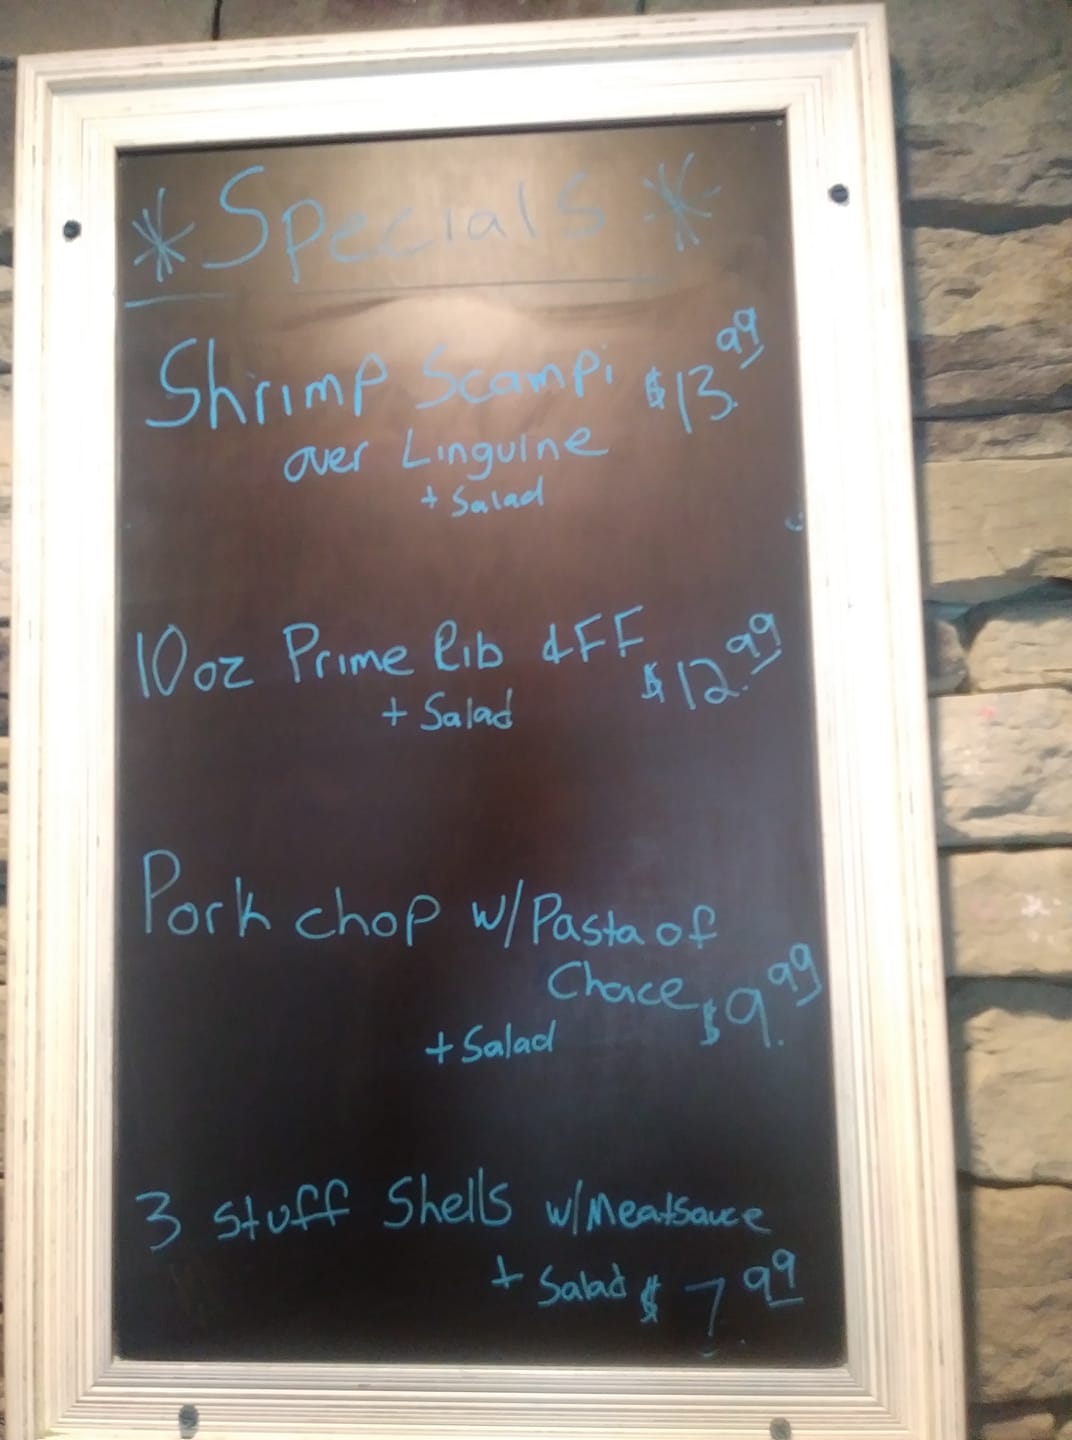 * Specials *
Shrimp Scampi $13.99
over Linguine
+ Salad
10oz Prime Rib &FF $12.99
+ Salad
Pork chop w/Pasta of
Choice $9.99
+ Salad
3 Stuff Shells w/Meatsauce
+ Salad $7.99